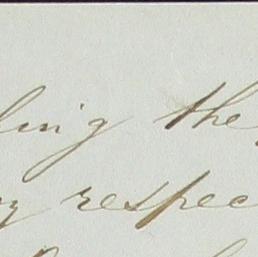 ling the
respec